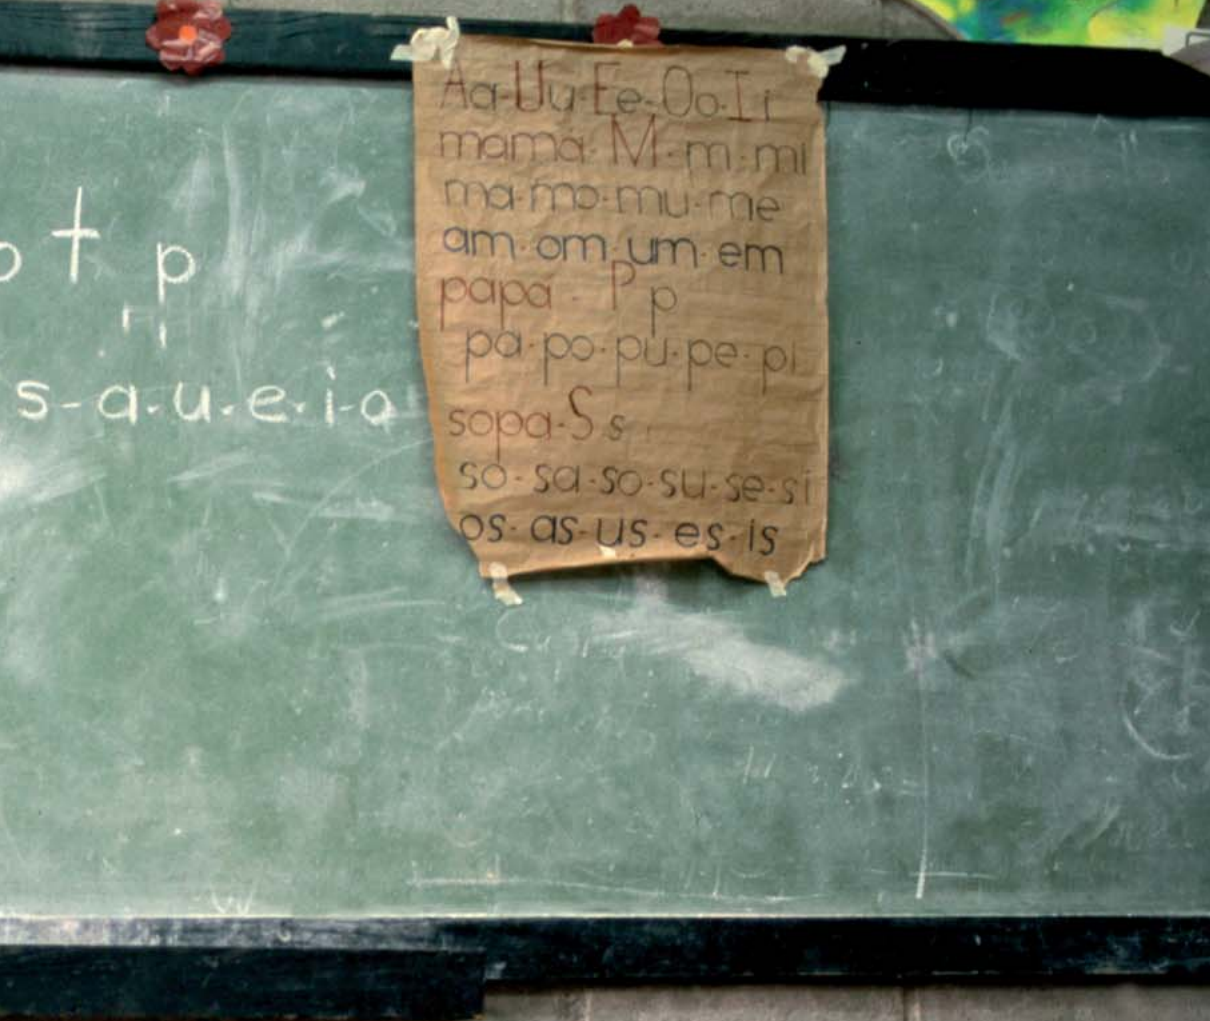 o t p
s-a-u-e-i-o
Aa-Uu-Ee-Oo-Ii
mamá-M-m-mi
ma-mo-mu-me
am-om-um-em
papá - P p
pa-po-pu-pe-pi
sopa-S s
so-sa-so-su-se-si
os-as-us-es-is